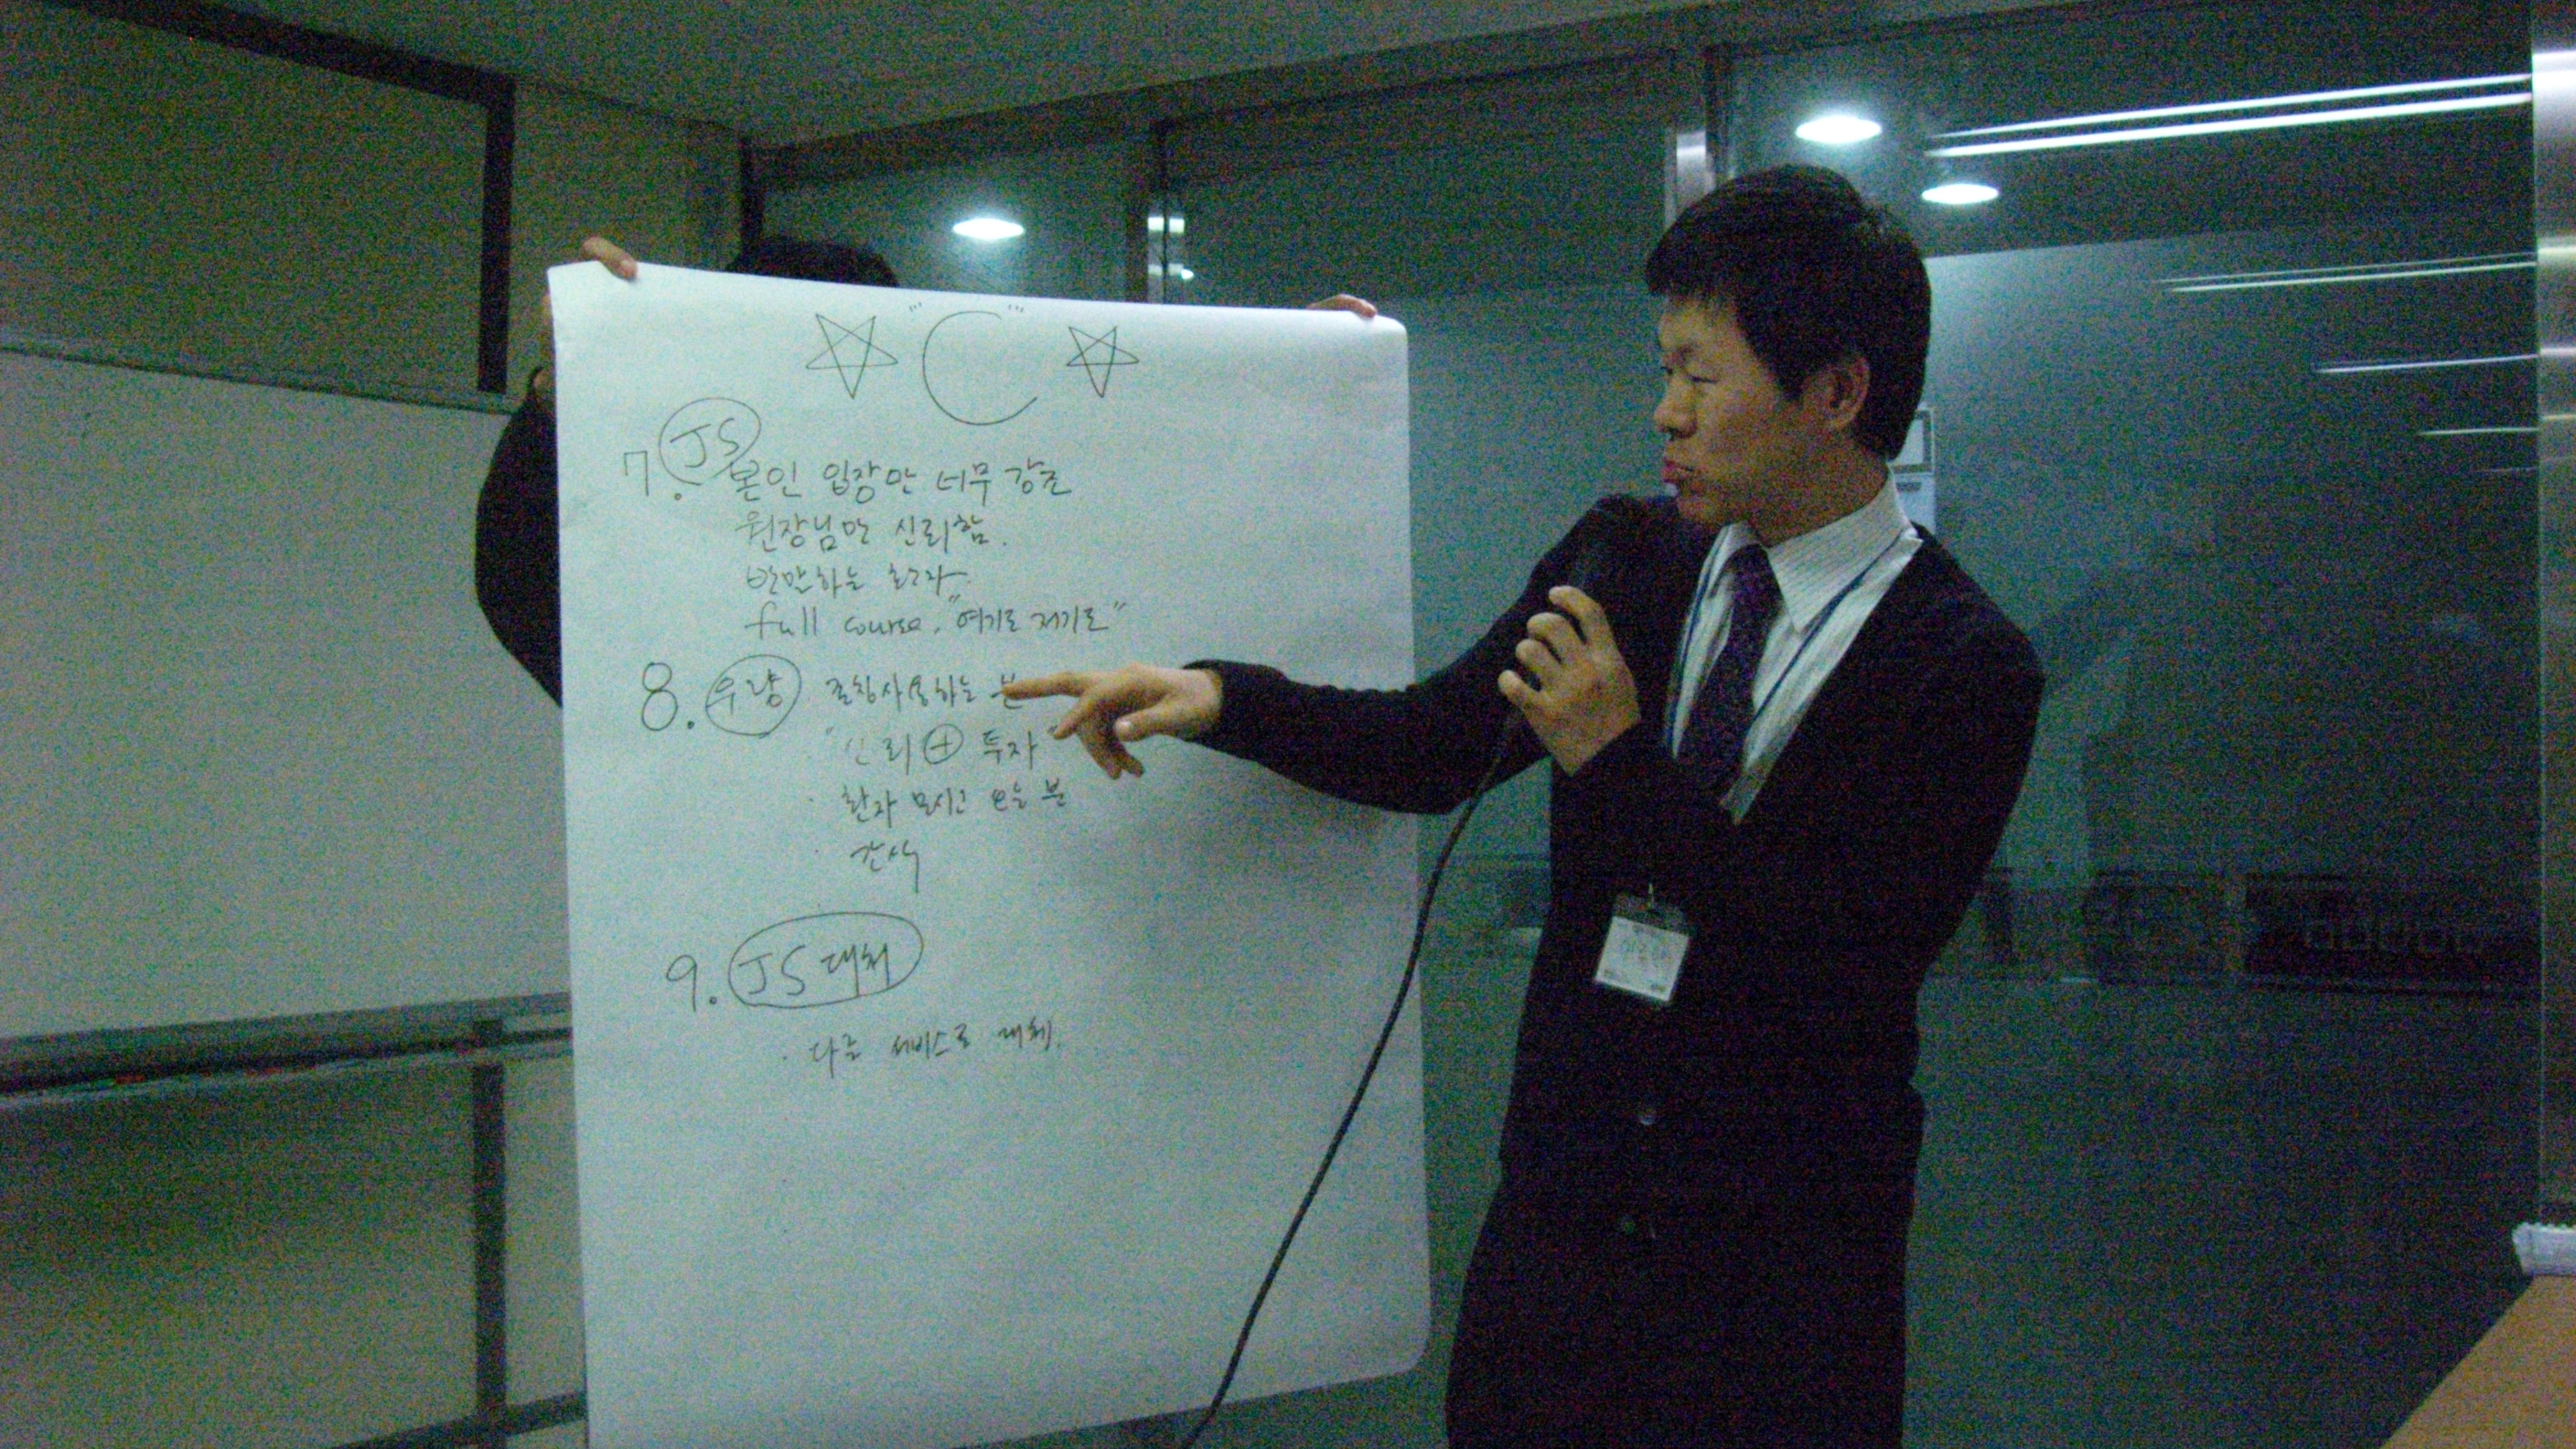 "C"
7. JS 본인 입장만 너무 강조
원장님만 신뢰함.
반말하는 환자.
full course. "여기도 저기도"
8. 우량 존칭사용하는 분
"신뢰 + 투자"
· 환자 모시고 오는 분
· 간식
9. JS 대처
· 다른 서비스로 대체.